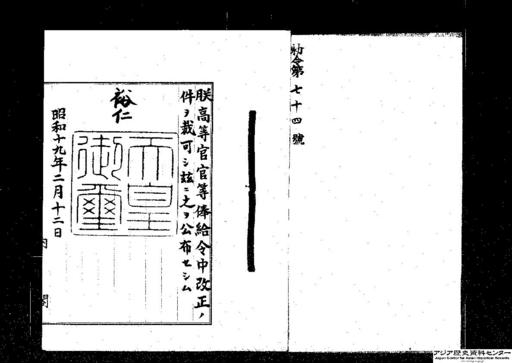 勅令第七十四號
朕高等官官等俸給令中改正ノ
件ヲ裁可シ玆ニ之ヲ公布セシム
裕仁
天皇
御璽
昭和十九年二月十二日
内閣
アジア歴史資料センター
Japan Center for Asian Historical Records